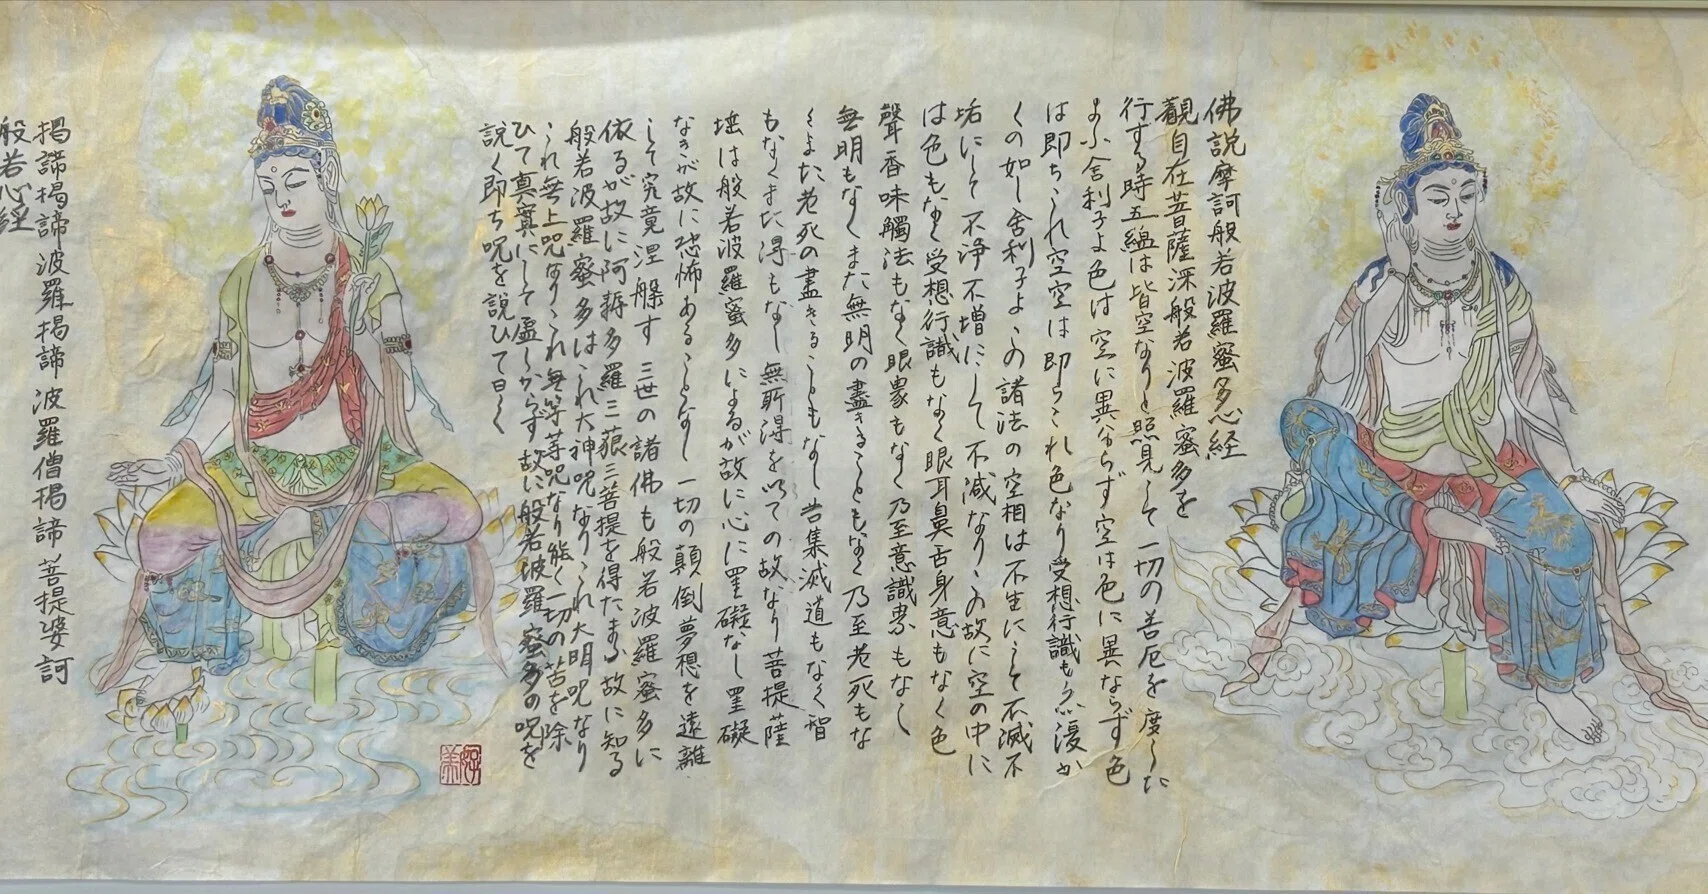 佛説摩訶般若波羅蜜多心経
観自在菩薩深般若波羅蜜多を
行する時五蘊は皆空なりと照見して一切の苦厄を度した
まふ舎利子よ色は空に異ならず空は色に異ならず色
は即ちこれ空空は即ちこれ色なり受想行識もまた復か
くの如し舎利子よこの諸法の空相は不生にして不滅不
垢にして不浄不増にして不減なりこの故に空の中に
は色もなく受想行識もなく眼耳鼻舌身意もなく色
聲香味觸法もなく眼界もなく乃至意識界もなし
無明もなくまた無明の盡きることもなく乃至老死もな
くまた老死の盡きることもなし苦集滅道もなく智
もなくまた得もなし無所得を以ての故なり菩提薩
埵は般若波羅蜜多によるが故に心に罣礙なし罣礙
なきが故に恐怖あることなし一切の顛倒夢想を遠離
して究竟涅槃す三世の諸佛も般若波羅蜜多に
依るが故に阿耨多羅三藐三菩提を得たまふ故に知る
般若波羅蜜多はこれ大神呪なりこれ大明呪なり
これ無上呪なりこれ無等等呪なり能く一切の苦を除
ひて真實にして虚しからず故に般若波羅蜜多の呪を
説く即ち呪を説ひて曰く
揭諦揭諦波羅揭諦波羅僧揭諦菩提婆訶
般若心経